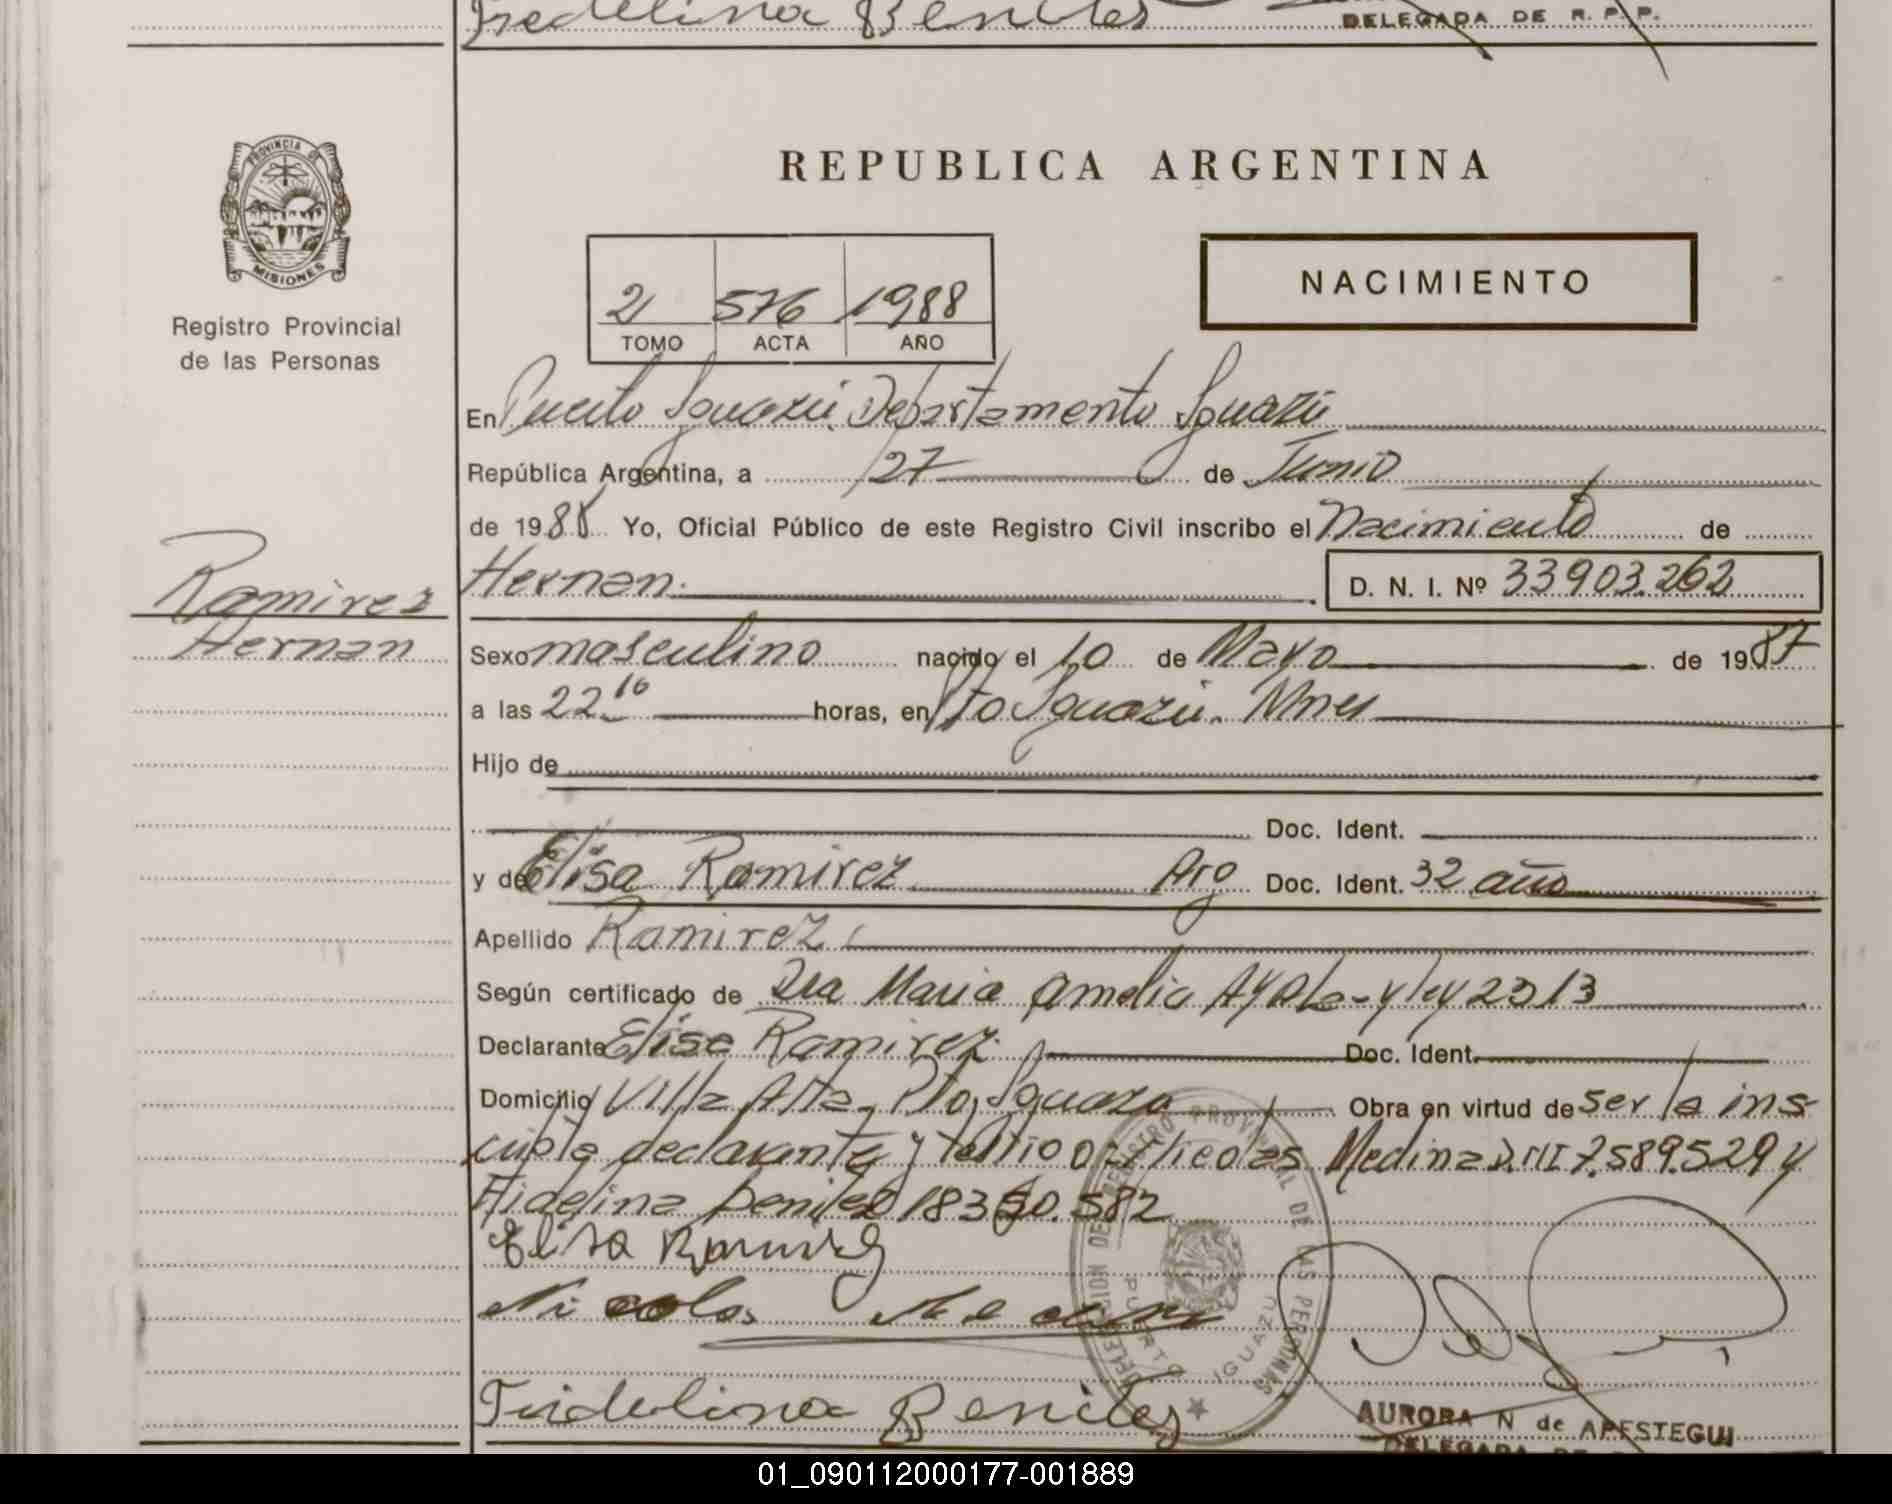 Fredelina Benites
DELEGADA DE R. P. P.
PROVINCIA DE
MISIONES
Registro Provincial
de las Personas
REPUBLICA ARGENTINA
NACIMIENTO
2 576 1988
TOMO ACTA AÑO
En Puerto Iguazú, Departamento Iguazú
República Argentina, a 27 de Junio
de 1988 Yo, Oficial Público de este Registro Civil inscribo el Nacimiento de
Ramirez
Hernan
Hernan. D. N. I. Nº 33903.262
Sexo masculino nacido el 10 de Mayo de 1987
a las 22.10 horas, en Pto Iguazú. Mnes
Hijo de
Doc. Ident.
y de Elisa Ramirez Arg Doc. Ident. 32 año
Apellido Ramirez
Según certificado de Dra Maria Amelia Ayala - y ley 2313
Declarante Elisa Ramirez Doc. Ident.
Domicilio Villa Alta - Pto, Iguazu Obra en virtud de ser la ins-
cripta declarante y testigo Nicolas Medina D.NI 7.589.529 y
Fidelina Benitez 18350.582
Elisa Ramirez
Nicolas Medina
Fridelina Benites
DELEGACION DEL REGISTRO PROVINCIAL DE LAS PERSONAS
PUERTO IGUAZU
AURORA N de APESTEGUI
DELEGADA DE
01_090112000177-001889